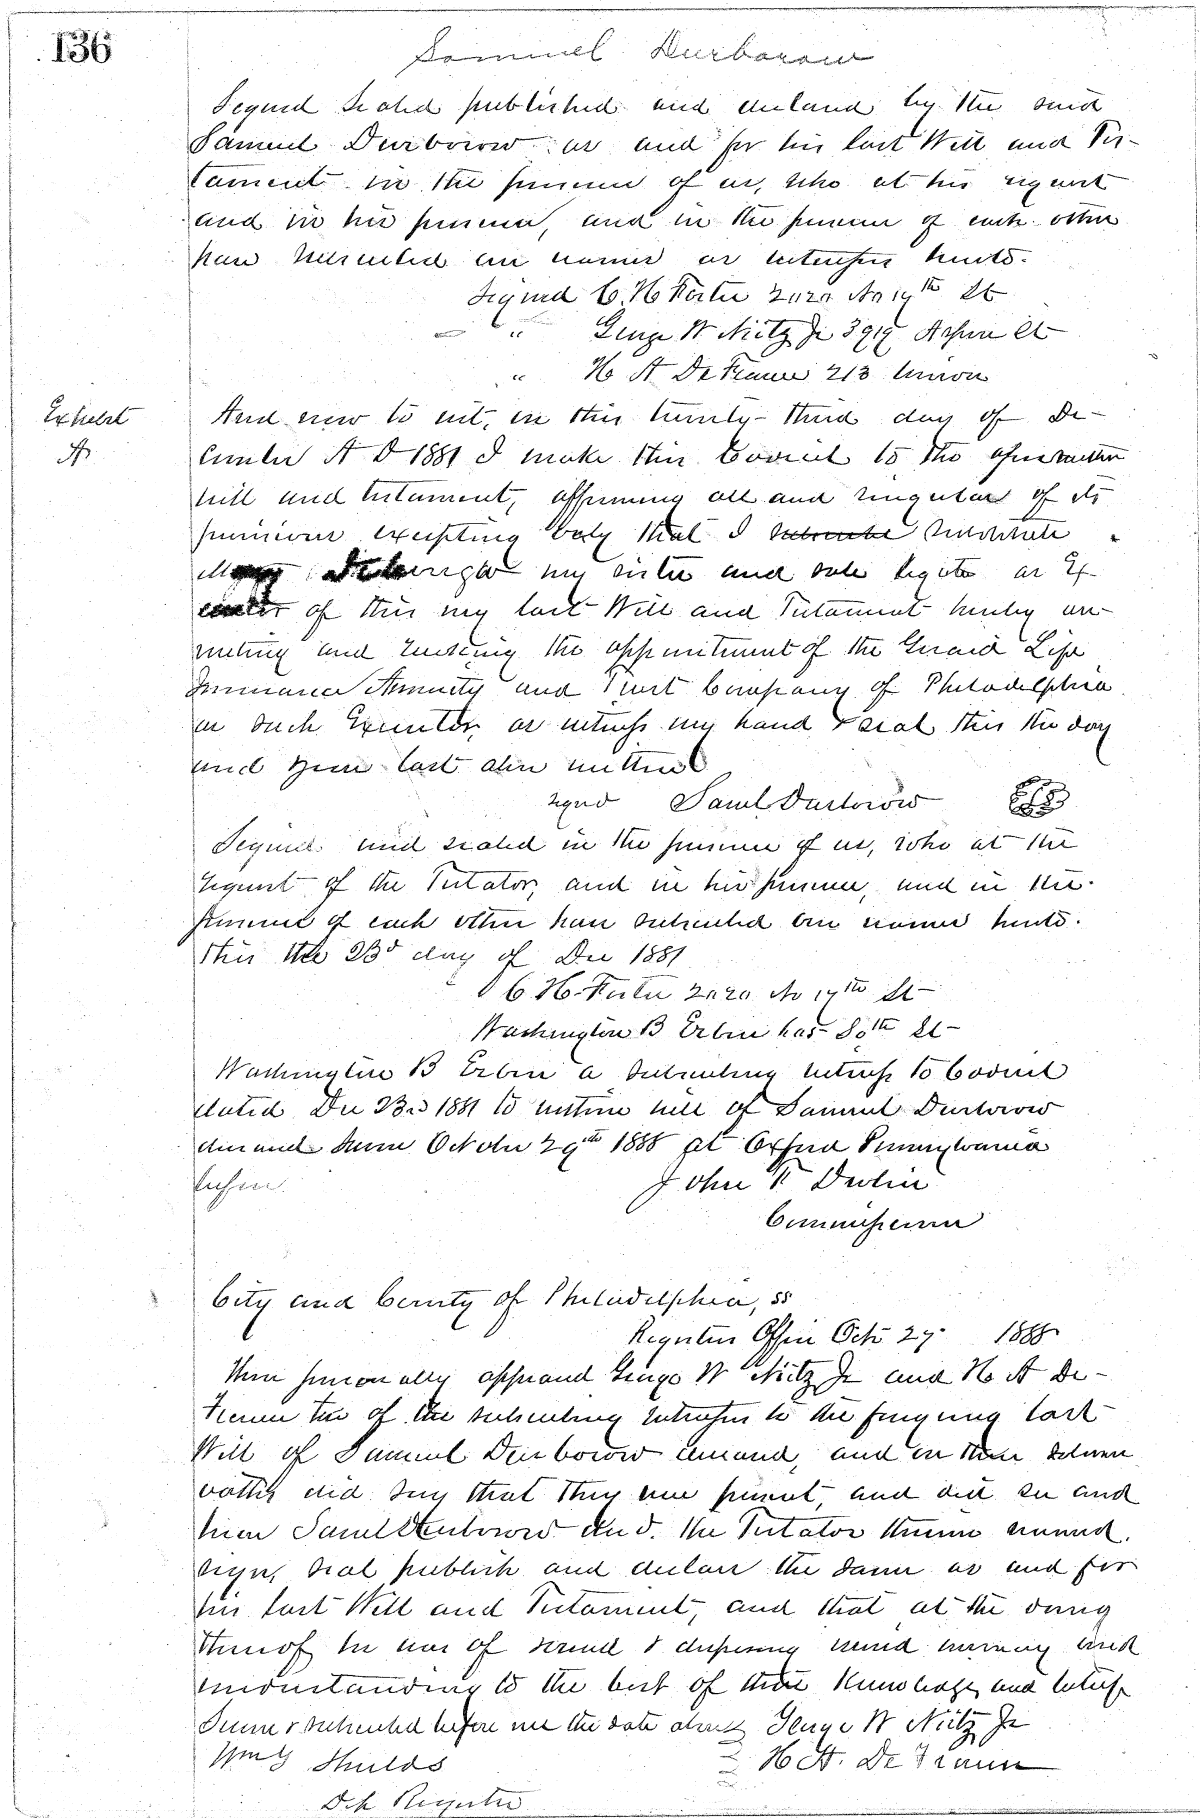 136
Samuel Durborow
Signed Sealed published and declared by the said
Samuel Durborow as and for his last Will and Tes-
tament in the presence of us, who at his request
and in his presence, and in the presence of each other
have subscribed our names as witnesses hereto.
Signed C. H. 2020 No 17th St
" George W Nietz Jr 3919 Aspen St
" H A De 213 Union
Exhibit
A
And now to wit, on this twenty-third day of De-
cember A D 1881 I make this Codicil to the aforewritten
will and testament, affirming all and singular of its
provisions excepting only that I subscribe substitute
Mary my sister and sole legatee as Ex-
ecutor of this my last Will and Testament hereby an-
nulling and revoking the appointment of the Girard Life
Insurance Annuity and Trust Company of Philadelphia
as such Executor, as witness my hand & seal this the day
and year last above written
signed Saml Durborow
Signed and sealed in the presence of us, who at the
request of the Testator, and in his presence, and in the
presence of each other have subscribed our names hereto.
this the 23d day of Dec 1881
C. H. 2020 No 17th St
Washington B Erben 80th St
Washington B Erben a subscribing witness to Codicil
dated Dec 23rd 1881 to written will of Samuel Durborow
deceased Sworn October 29th 1888 at Oxford Pennsylvania
before John F Devlin
Commissioner
City and County of Philadelphia, ss
Registers Office Oct 29 1888
Then personally appeared George W Nietz Jr and H A De-
two of the subscribing witnesses to the foregoing last
Will of Samuel Durborow deceased, and on their solemn
oaths did say that they were present, and did see and
hear Saml Durborow decd. the Testator therein named,
sign, seal publish and declare the same as and for
his last Will and Testament, and that at the doing
thereof he was of sound & disposing mind memory and
understanding to the best of their Knowledge and belief
Sworn & subscribed before me the date above George W Nietz Jr
Wm G Shields H A. De
Dep Register